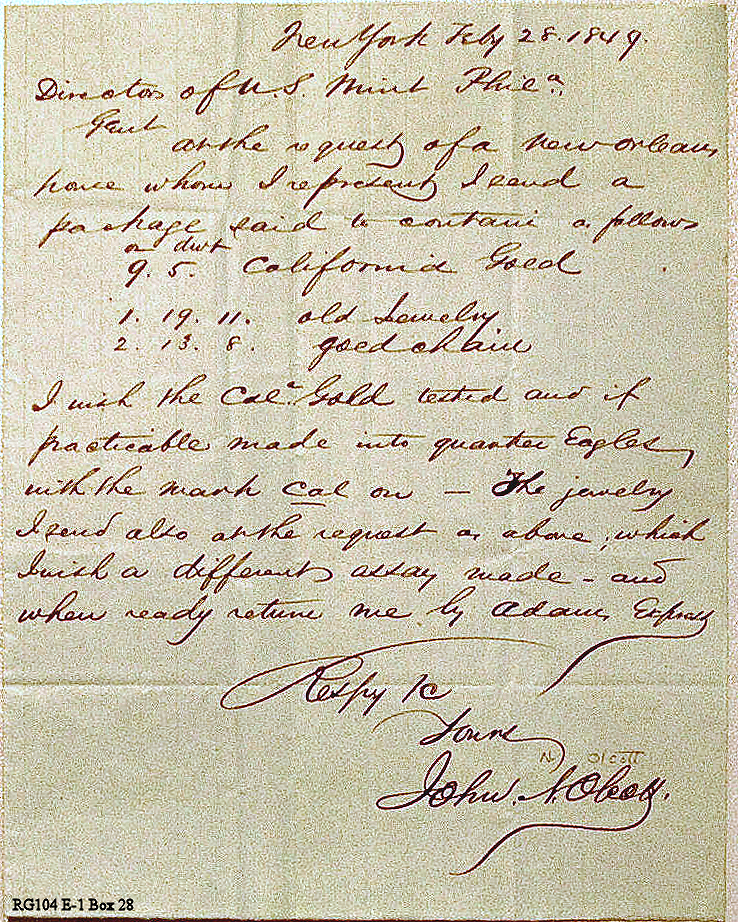 New York Feby 28. 1849.
Director of U.S. Mint Phila.
Gent
at the request of a New Orleans
house whom I represent I send a
package said to contain as follows
oz dwt
9. 5. California Gold
1. 19. 11. old Jewelry
2. 13. 8. gold chain
I wish the Cala. Gold tested and if
practicable made into quarter Eagles,
with the mark Cal on – The jewelry
I send also at the request as above, which
I wish a different assay made – and
when ready return me by Adams Express
Respy &c
Yours
N. Olcott
John N. Olcott.
RG104 E-1 Box 28